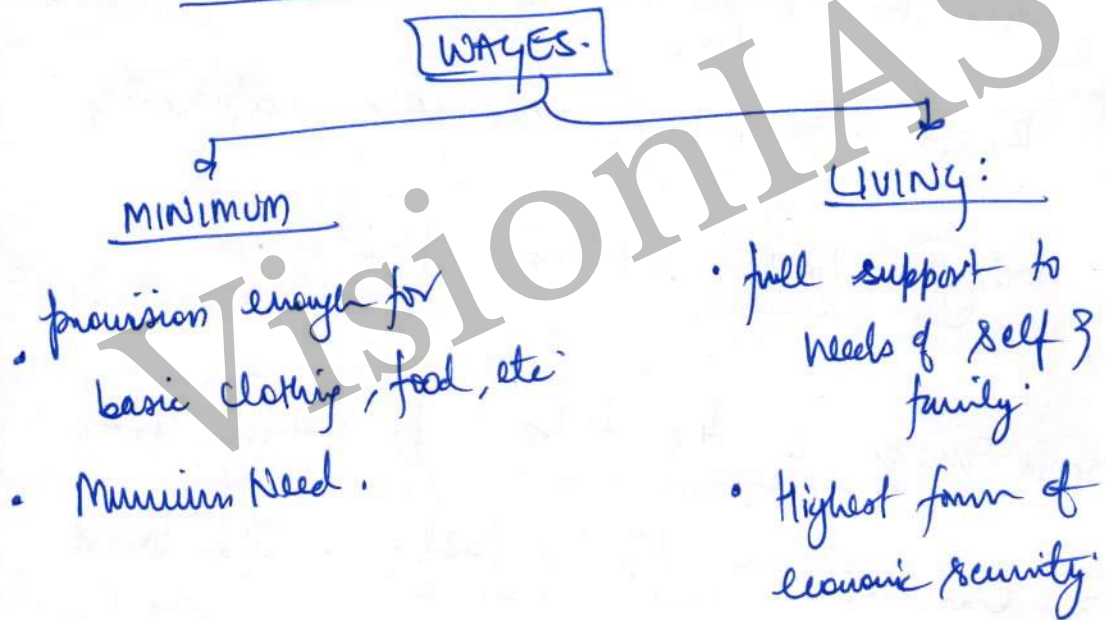 WAGES.
MINIMUM
• provision enough for
basic clothing, food, etc
• Minimum Need.
LIVING:
• full support to
needs of self &
family.
• Highest form of
economic security.
VisionIAS